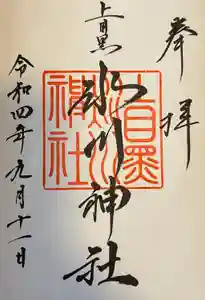 奉拝
上目黒
氷川神社
令和四年九月十一日
上目黒
氷川
神社